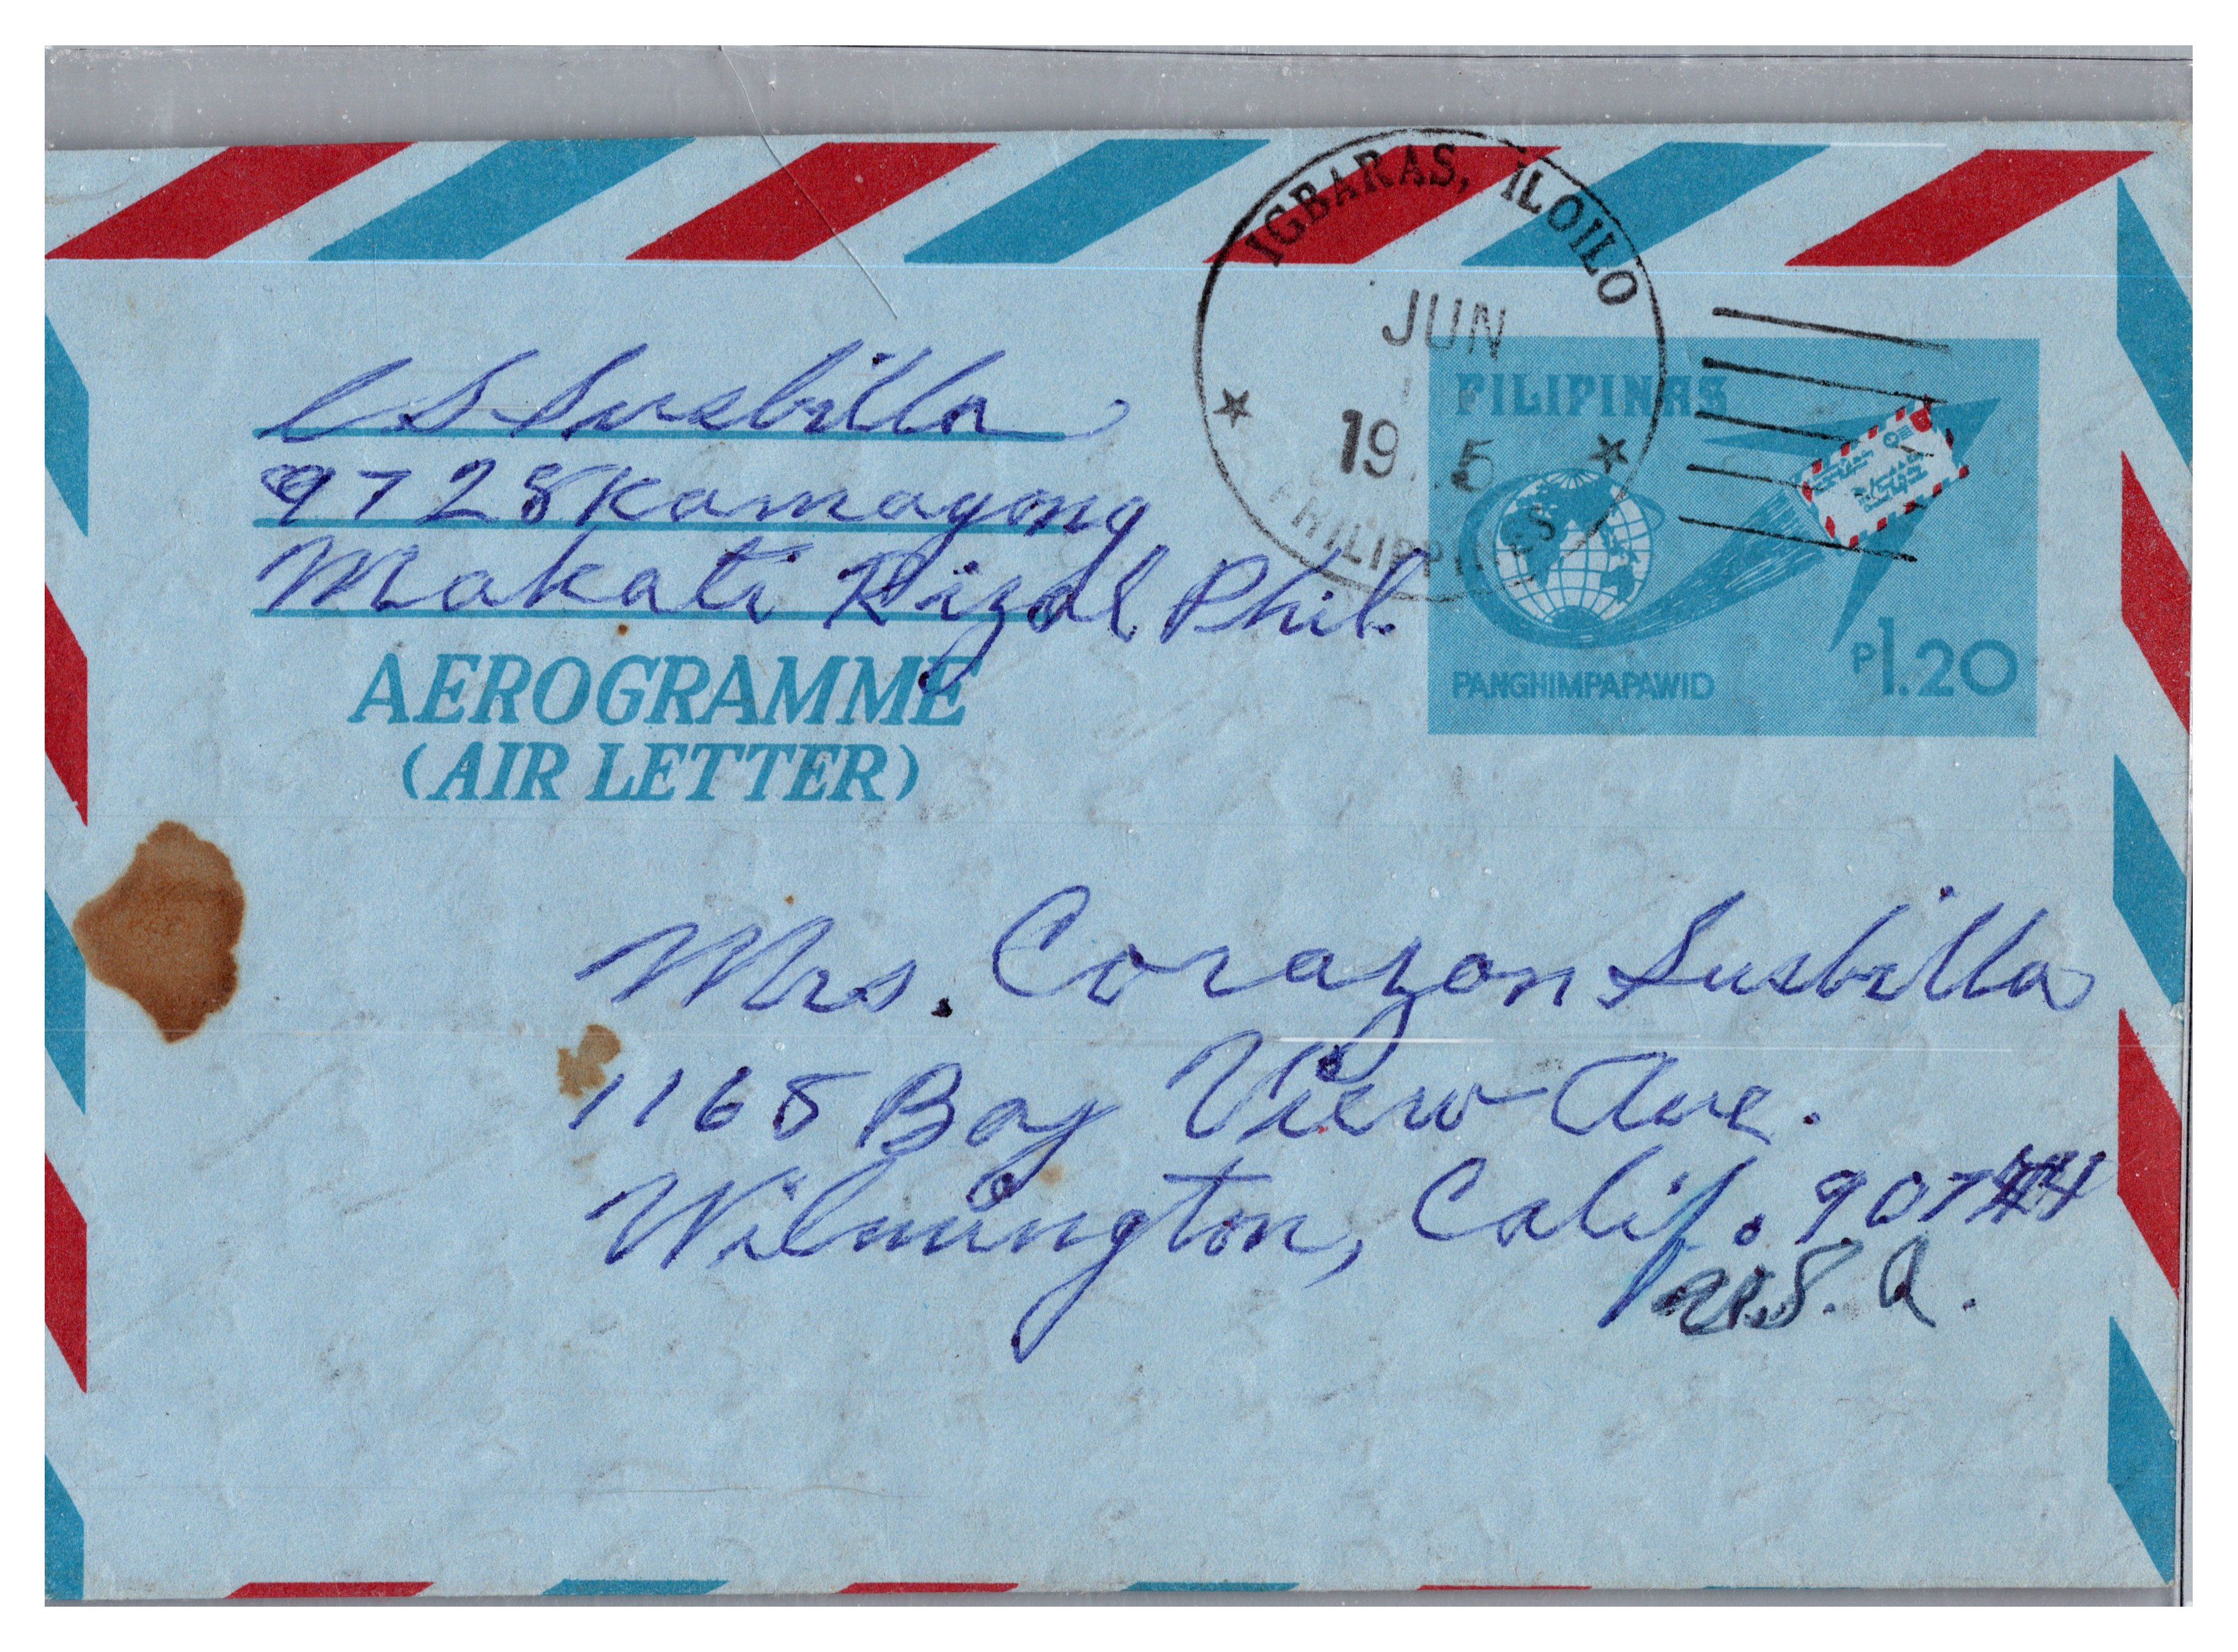 IGBARAS, ILOILO
JUN
19 5
PHILIPPINES
C S Susbilla
9728 Kamagong
Makati Rizal Phil.
AEROGRAMME
(AIR LETTER)
PILIPINAS
PANGHIMPAPAWID
P1.20
Mrs. Corazon Susbilla
1168 Bay View Ave.
Wilmington, Calif. 90744
U.S.A.